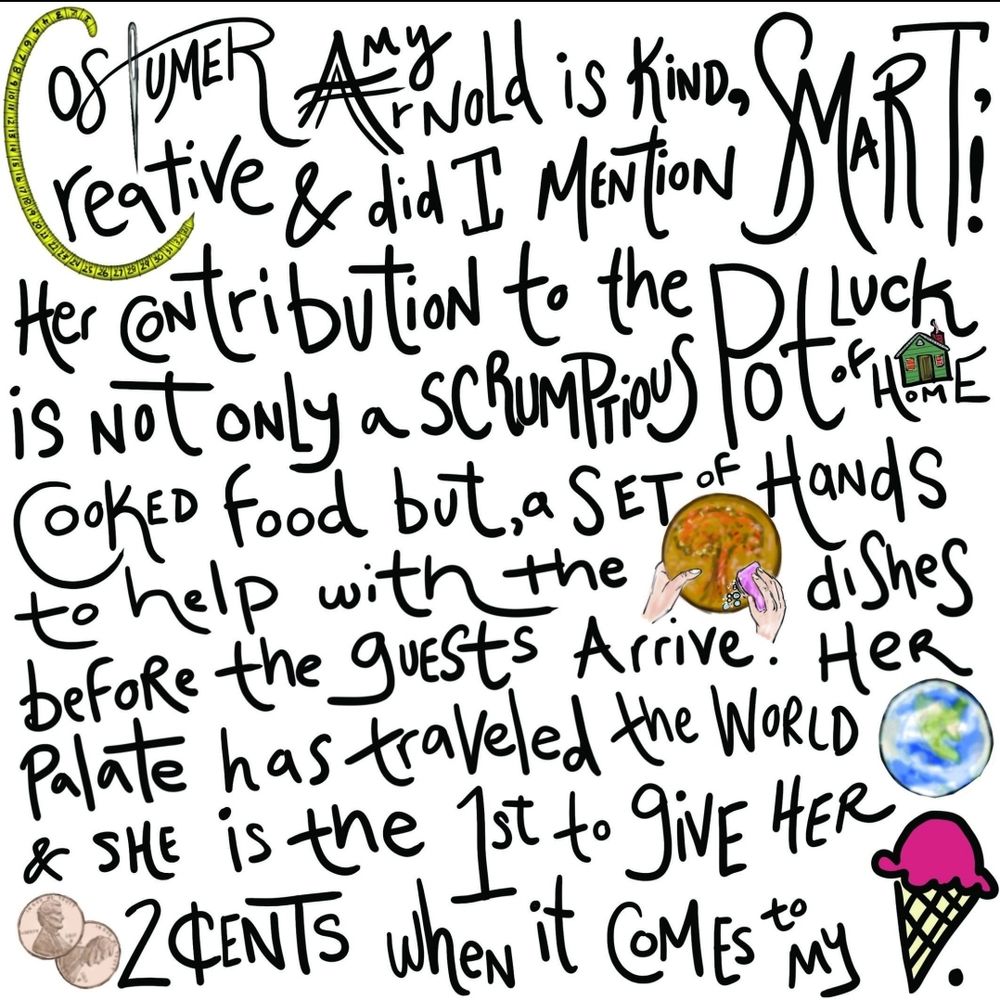 Costumer Amy Arnold is Kind, SMART!
Creative & did I Mention
Her Contribution to the Pot Luck
is not only a SCRUMPTIOUS of HOME
Cooked food but, a SET of Hands
to help with the dishes
before the guests Arrive. Her
Palate has traveled the WORLD
& SHE is the 1st to give HER
2 ¢ENTS when it COMES to my .